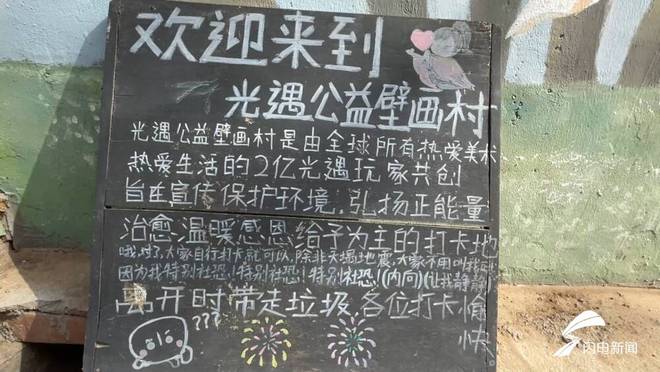 欢迎来到
光遇公益壁画村
光遇公益壁画村是由全球所有热爱美术
热爱生活的2亿光遇玩家共创
旨在宣传保护环境,弘扬正能量
治愈温暖感恩给予为主的打卡地
哦,对了,大家自行打卡就可以,除非天塌地震,大家不用叫我
因为我特别社恐!特别社恐!特别社恐!(内向)(让我静静)
离开时带走垃圾 各位打卡愉
快
???
闪电新闻